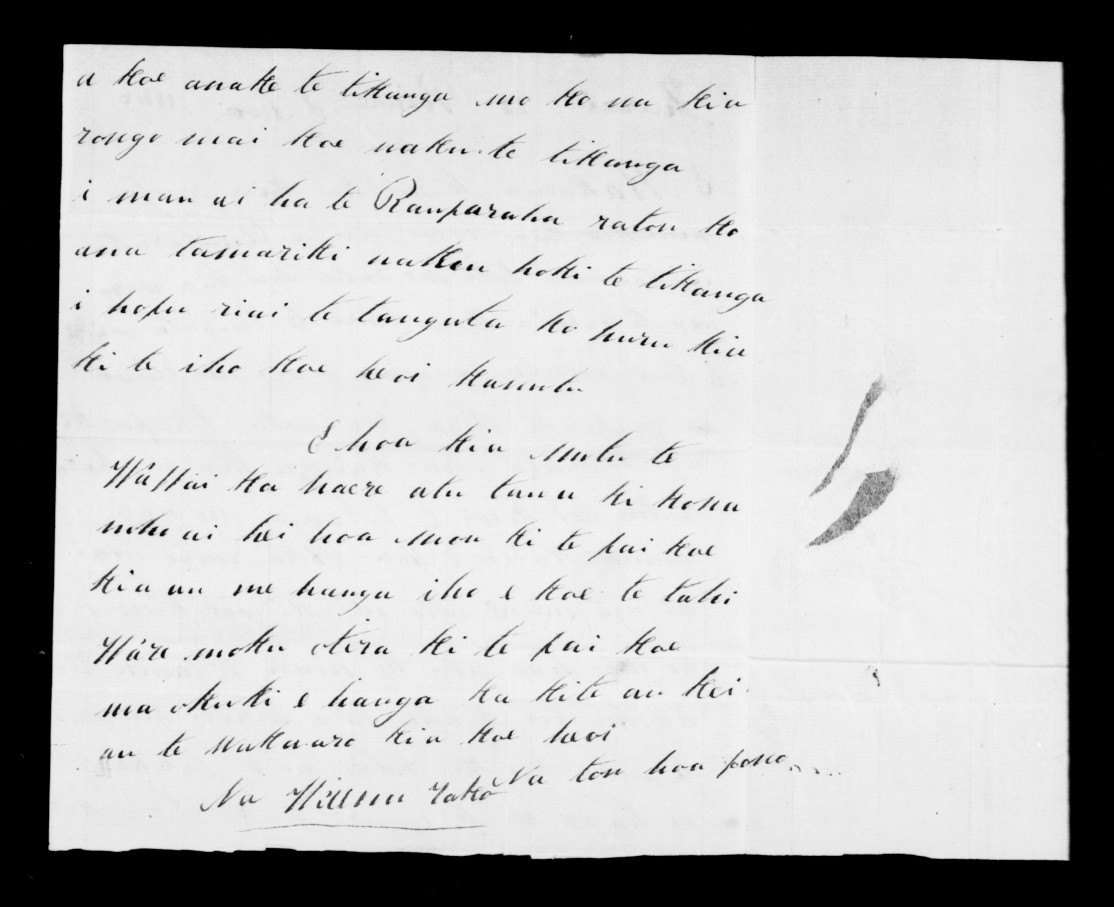 a koe anake te tikanga mo ko na kia
rongo mai koe naku te tikanga
i mau ai ha te Rauparaha ratou ko
ana tamariki naku hoki te tikanga
i hopu riai te tangata ko huru kia
ki te iho koe heoi kamutu
E hoa kia mutu te
Wawai ka haere atu taua ki kona
noho ai hei hoa mou ki te pai koe
kia au me hanga iho e koe te tahi
Ware moku otira ki te pai koe
ma okuki e hanga ka kite au kei
au te wakaaro kia koe heoi
Na tou hoa pono
Na Willem Tako